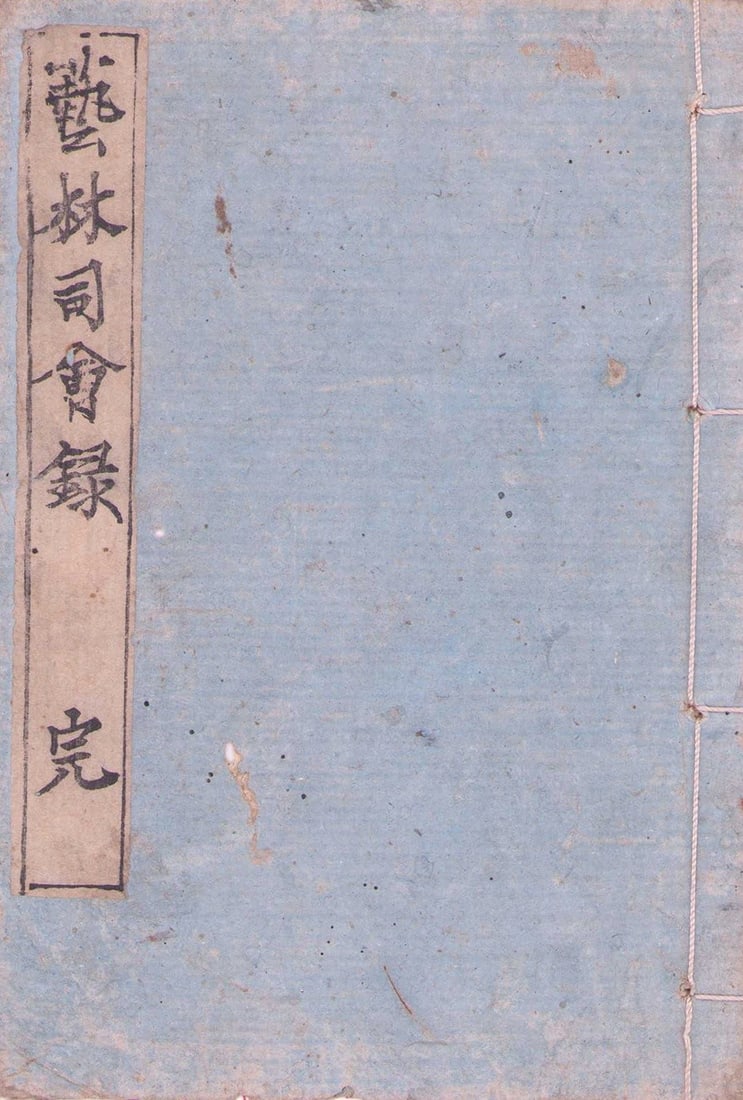 藝林司會録 完